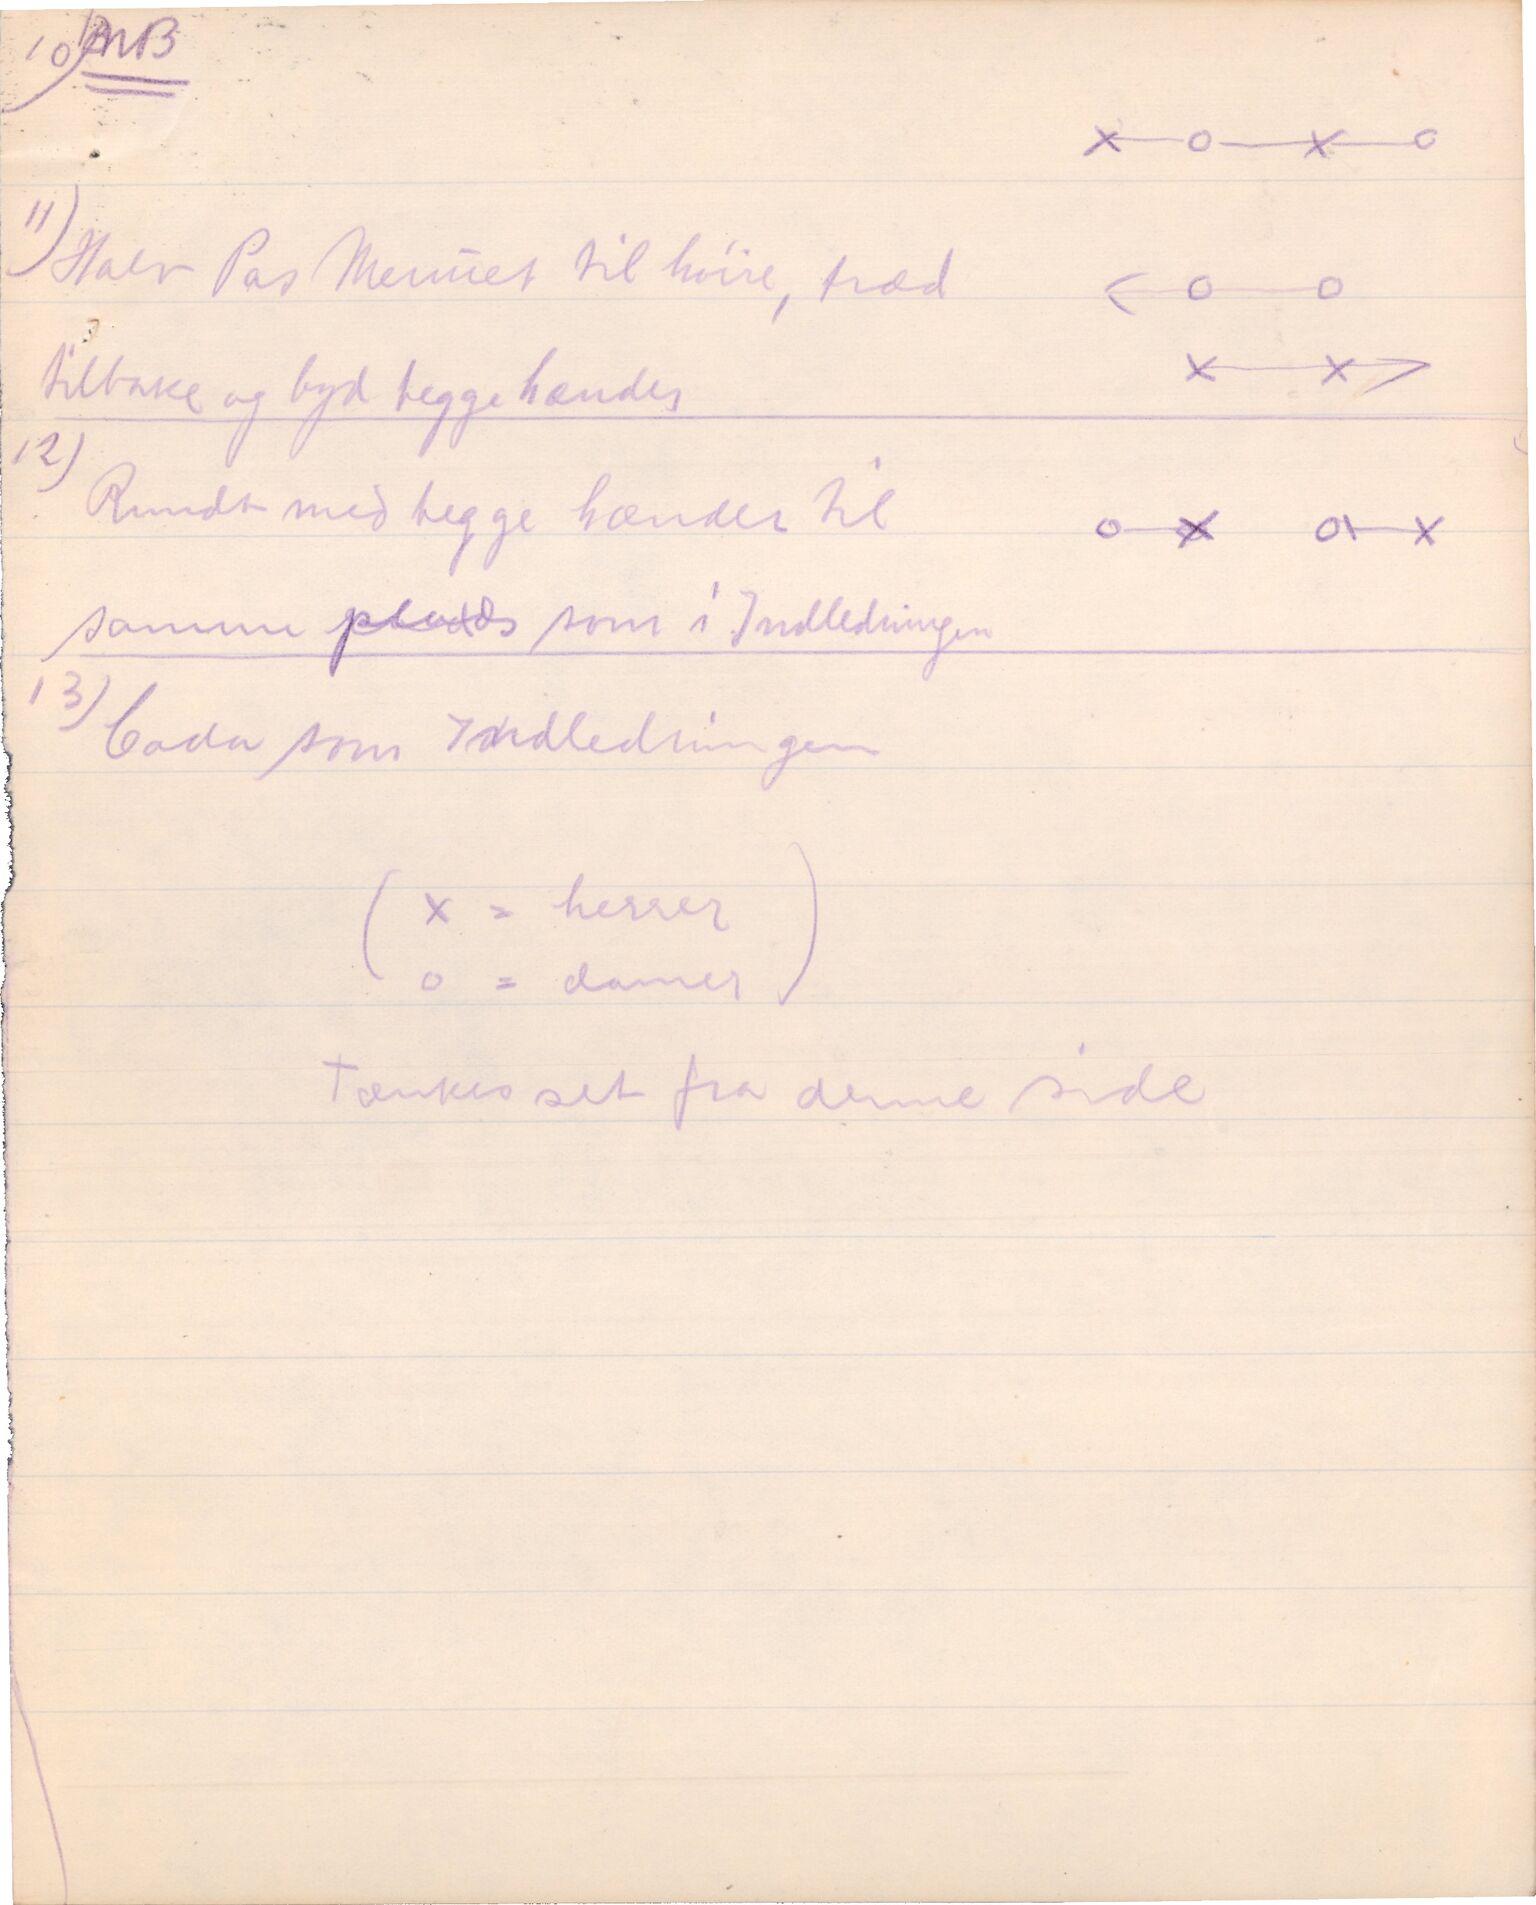 10) NB
x—o—x—o
11) Halv Pas Menuet til höire, træd
< o—o
tilbake og byd begge hænder
x—x >
12)
Rundt med begge hænder til
o—x o—x
samme plads som i Indledningen
13) Coda som Indledningen
( x = herrer
o = damer )
Tænkes set fra denne side